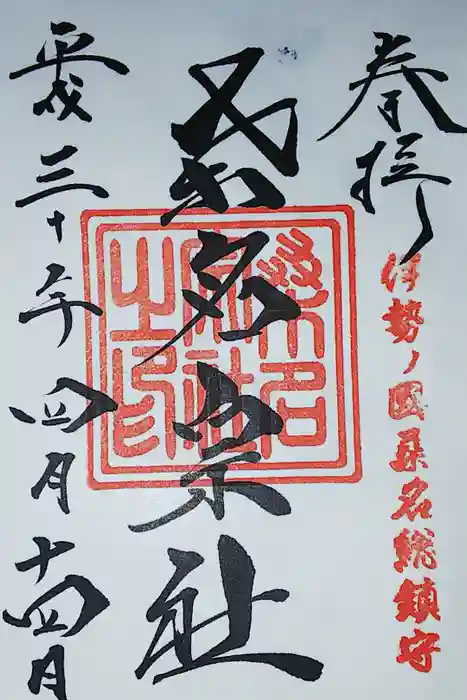 奉拝
伊勢ノ國桑名総鎮守
桑名宗社
桑名宗社之印
平成三十年四月十四日